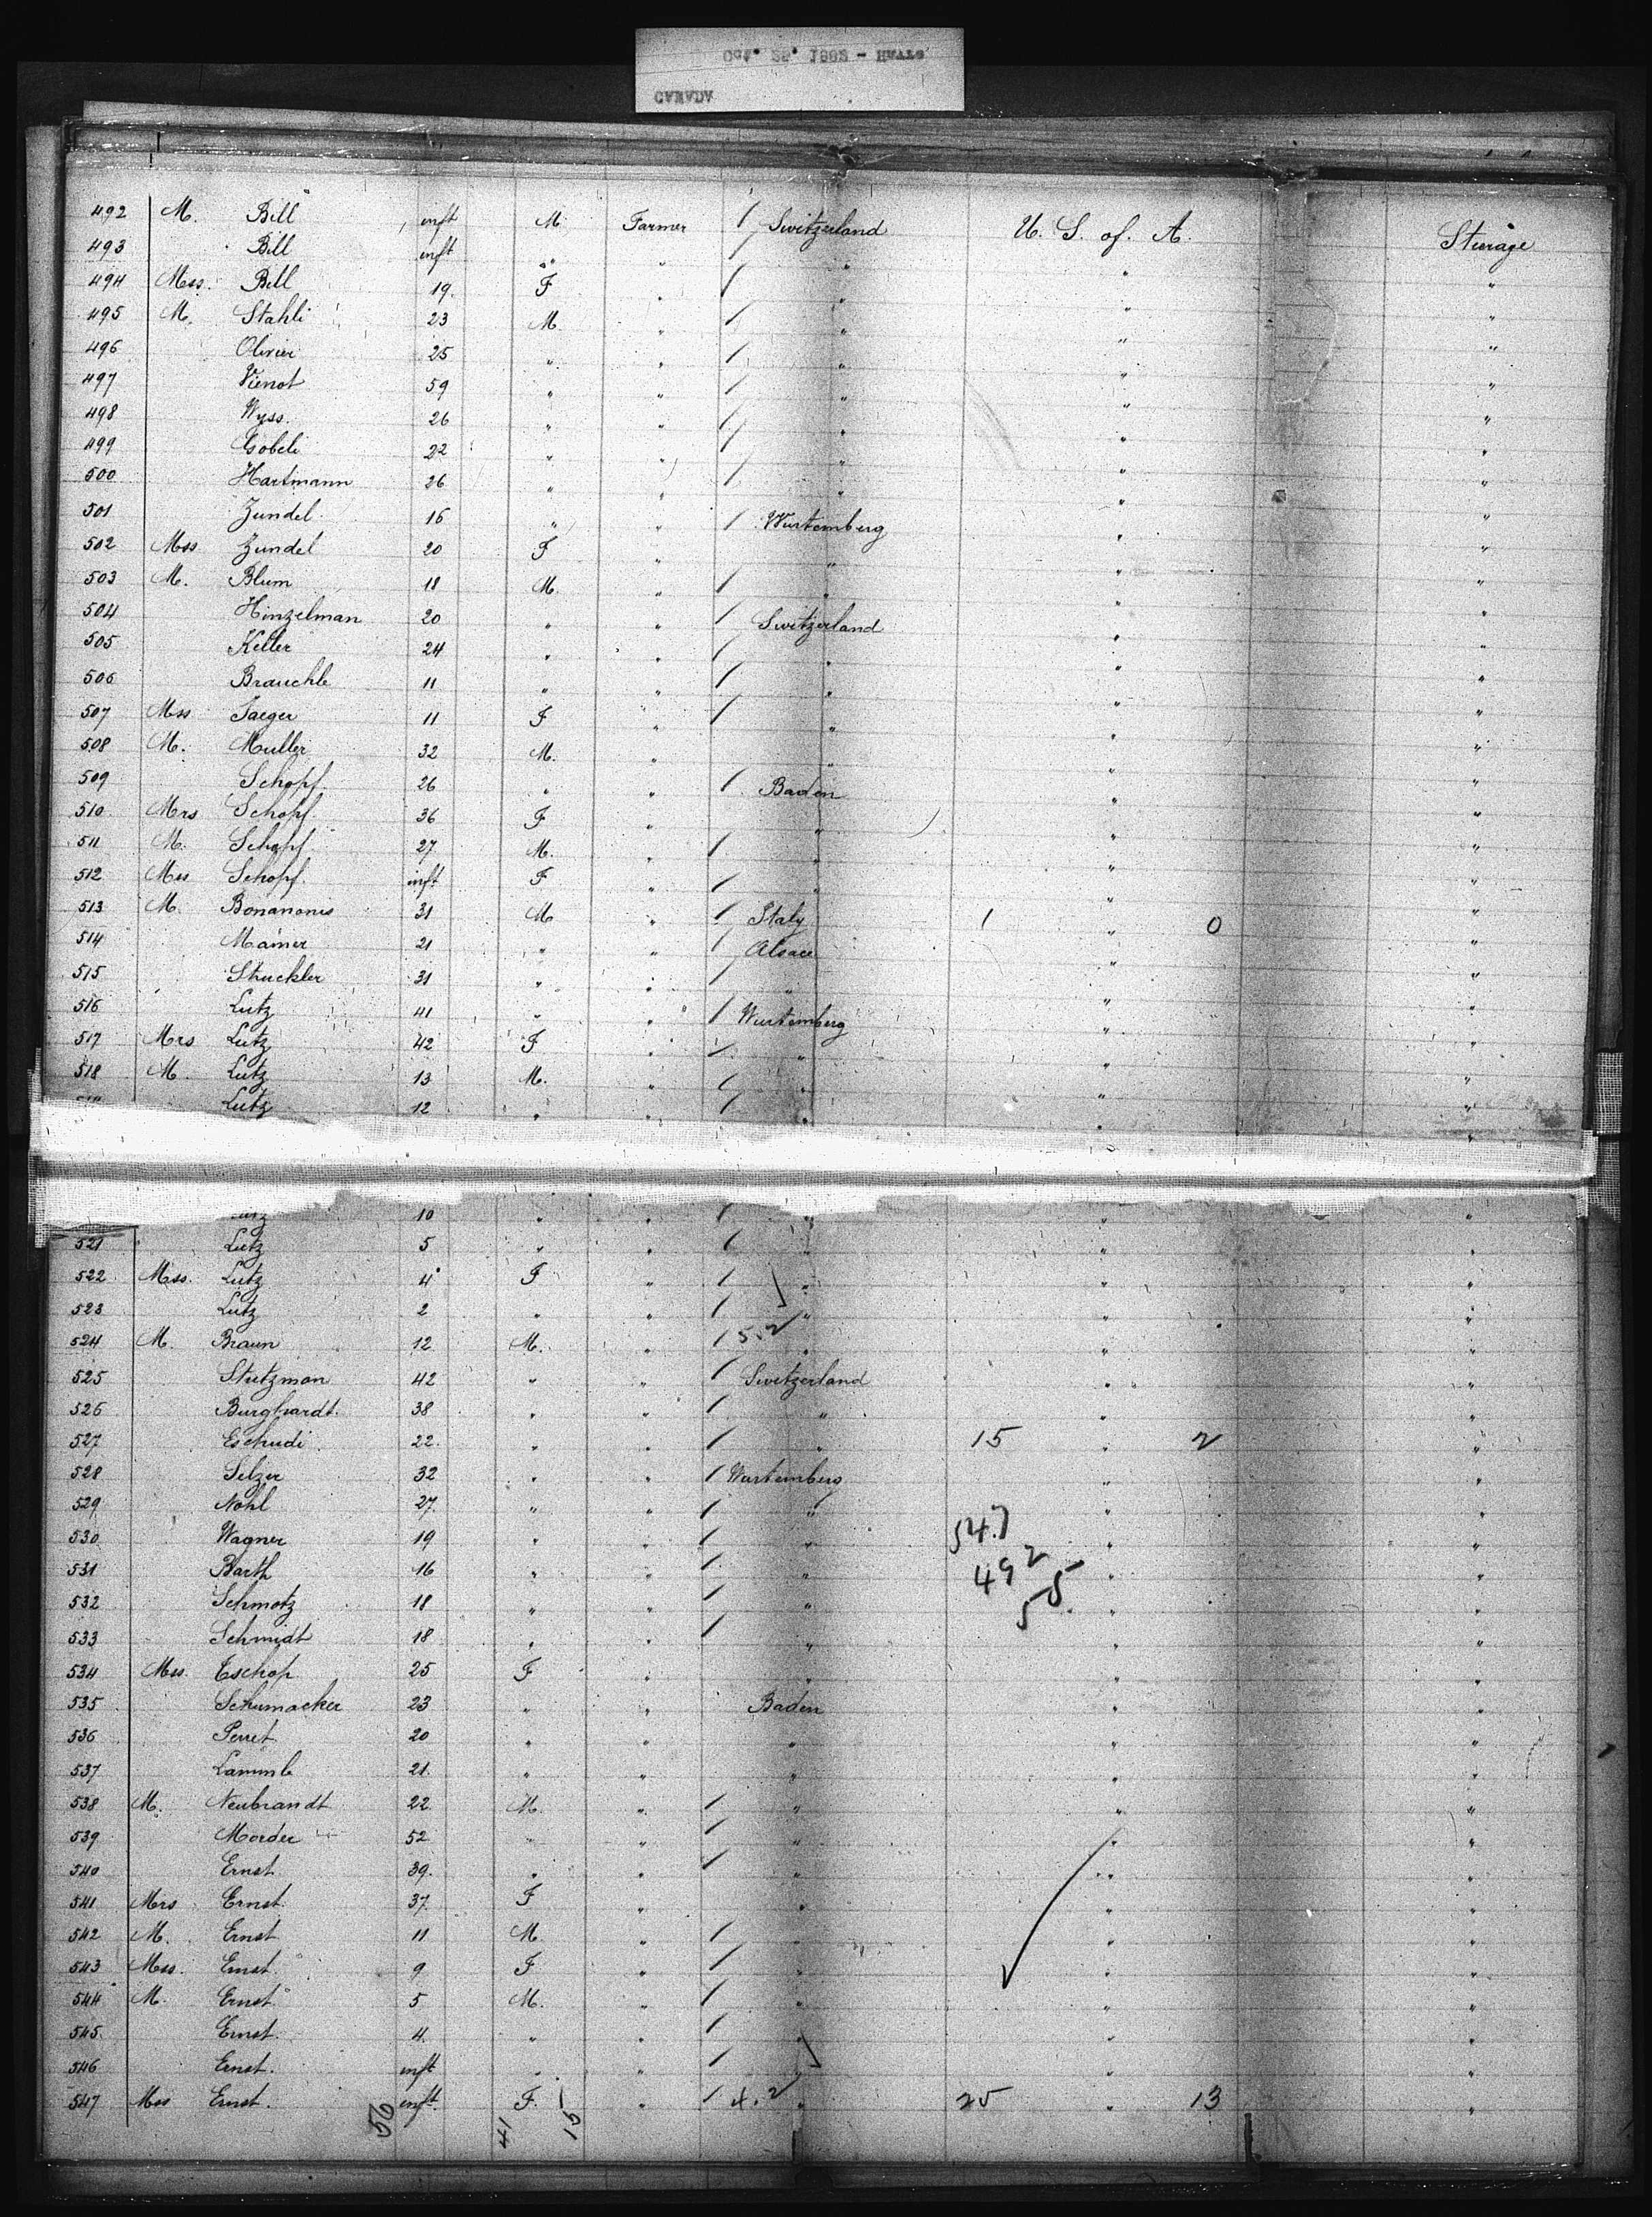 492 M. Bill inft M. Farmer / Switzerland U. S. of. A. Steerage
493 Bill inft " " " " "
494 Mss. Bill 19. F " / " " "
495 M. Stahli 23 M. " / " " "
496 Olivier 25 " " / " " "
497 Vienot 59 " " / " " "
498 Wyss. 26 " " / " " "
499 Gobeli 22 " " / " " "
500 Hartmann 26 " " / " " "
501 Zundel 16 " " / Wurtemberg " "
502 Mss Zundel 20 F " " " "
503 M. Blum 18 M. " / " " "
504 Hinzelman 20 " " / Switzerland " "
505 Keller 24 " " / " " "
506 Brauchle 11 " " / " " "
507 Mss Jaeger 11 F " / " " "
508 M. Muller 32 M. " " " "
509 Schopf 26 " " / Baden " "
510 Mrs Schopf. 36 F " " " "
511 M. Schopf 27 M. " / " " "
512 Mss Schopf. inft F " / " " "
513 M. 31 M " / Italy 1 " 0 "
514 21 " " / Alsace " "
515 Stuckler 31 " " / " " "
516 Lutz 41 " " / Wurtemberg " "
517 Mrs Lutz 42 F " / " " "
518 M. Lutz 13 M. " / " " "
Lutz 12 " " / " " "
10 " " / " " "
521 Lutz 5 " " / " " "
522 Mss. Lutz 4 F " / " " "
523 Lutz 2 " " / " " "
524 M. Braun 12 M. " / 5.2 " " "
525 Stutzman 42 " " / Switzerland " "
526 Burghardt. 38 " " / " " "
527 Eschudi 22. " " / " 15 " 2 "
528 Selzer 32 " " / Wurtemberg " "
529 Nohl 27. " " / " " "
530 Wagner 19 " " / " 547 " "
531 Barth 16 " " / " 492 " "
532 Schmotz 18 " " / " 55 " "
533 Schmidt 18 " " / " " "
534 Mss. Eschop 25 F " " " "
535 Schumacker 23 " " Baden " "
536 Perret 20 " " " " "
537 Lammle 21. " " " " "
538 M. Neubrandt 22 M. " / " " "
539 Morder 52 " " / " " "
540 Ernst 39. " " / " " "
541 Mrs Ernst 37 F " " " "
542 M. Ernst 11 M " / " " "
543 Mss. Ernst 9 F " / " " "
544 M. Ernst 5 M. " / " " "
545 Ernst. 4. " " / " " "
546 Ernst. inft " " / " " "
547 Mss Ernst. inft. F. " / 4.2 " 25 " 13 "
41